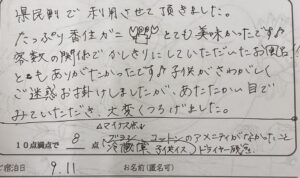 県民割で利用させて頂きました。
たっぷり香住ガニ とても美味かったです♪
客数の関係でかしきりにしていただいたお風呂
ともありがたかったです♪子供がさわがしく
ご迷惑お掛けしましたが、あたたかい目で
みていただき、大変くつろげました。
△マイナス点↓
10点満点で 8 点 コットンのアメニティがなかったこと
冷蔵庫 子供イス ドライヤー
宿泊日 9.11 お名前(匿名可)